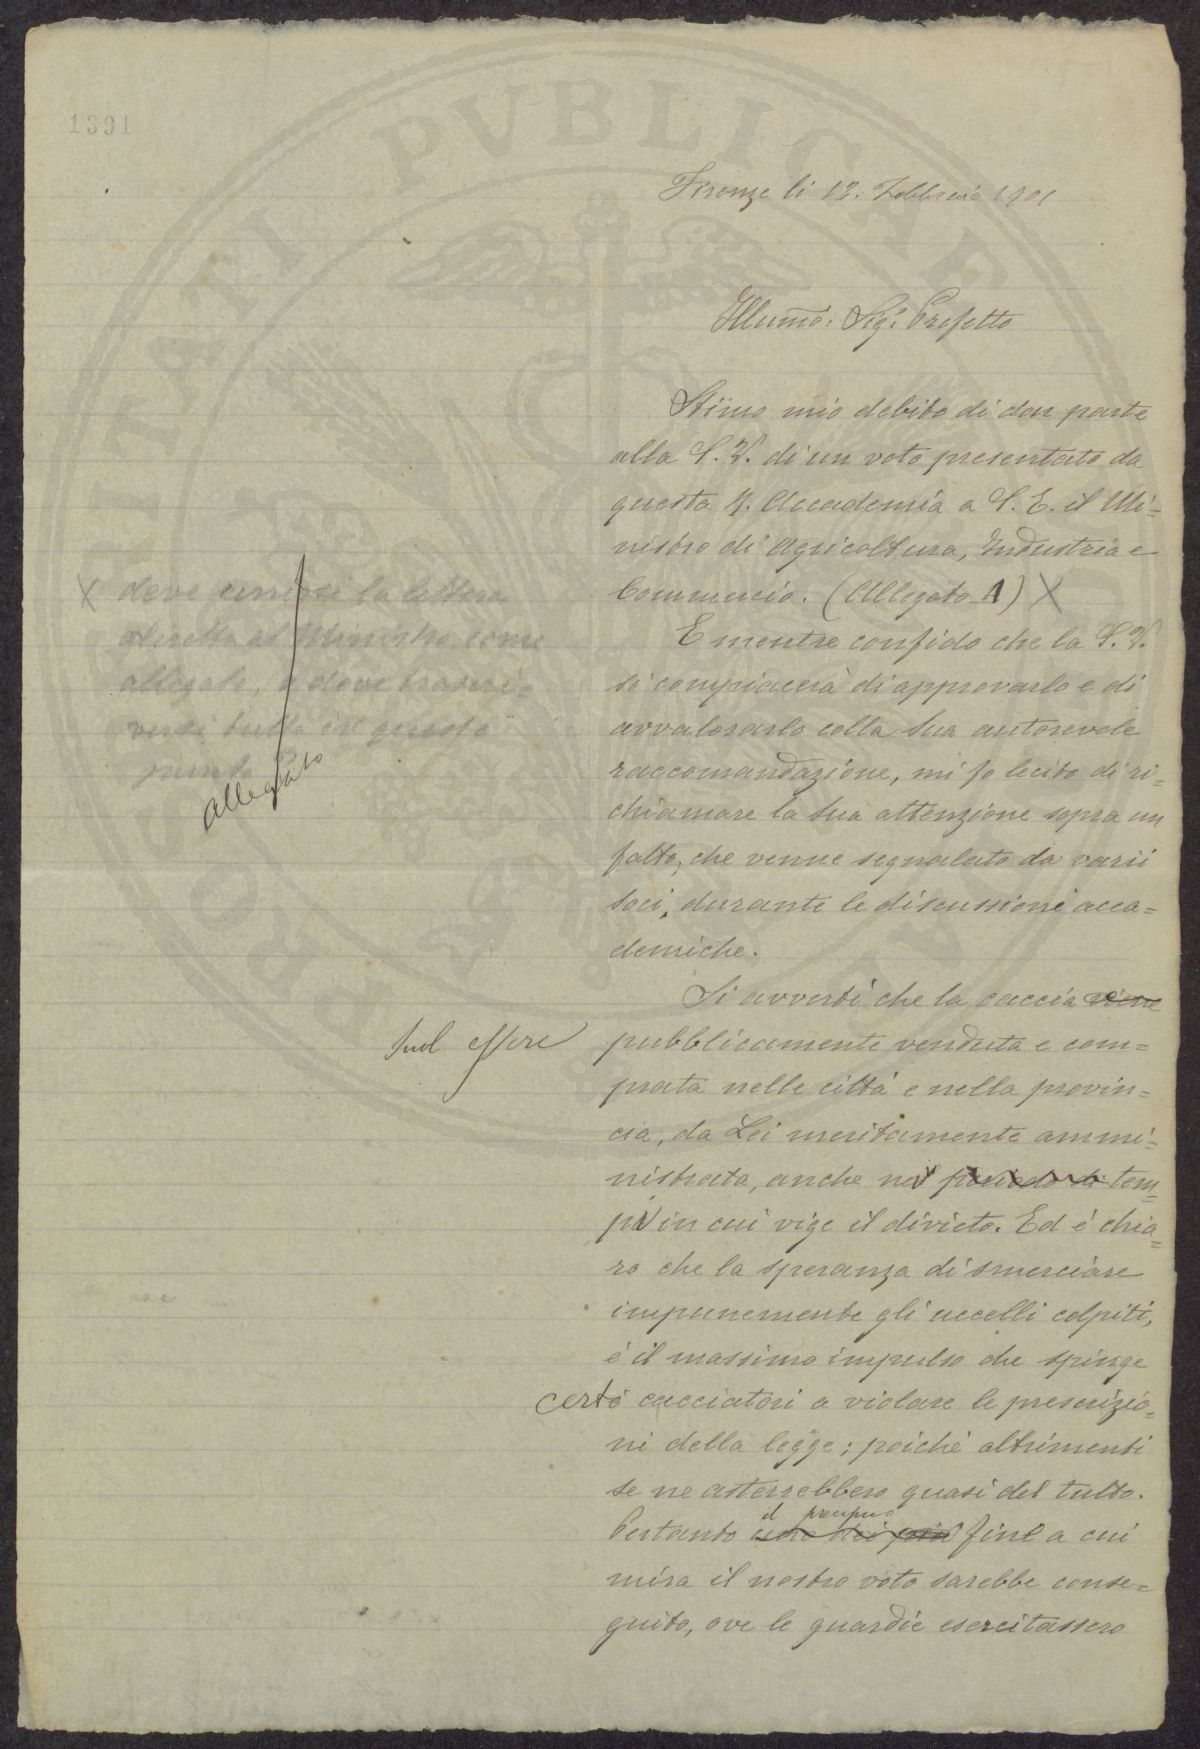 1391
Firenze li 12. Febbraio 1901
Illumo: Sigr Prefetto
Stimo mio debito di dar parte
alla S.V. di un voto presentato da
questa R. Accademia a S. E. il Mi=
nistro di Agricoltura, Industria e
Commercio. (Allegato A) X
X deve unirsi la lettera
diretta al Ministro come
allegato, e deve trascri=
versi tutta in questo
punto
allegato
E mentre confido che la S.V.
si compiacerà di approvarlo e di
avvalorarlo colla Sua autorevole
raccomandazione, mi fo lecito di ri=
chiamare la Sua attenzione sopra un
fatto, che venne segnalato da varii
Soci, durante le discussioni acca=
demiche.
Si avvertì che la caccia viene
suol essere pubblicamente venduta e com=
prata nelle città e nella provin=
cia, da Lei meritamente ammi=
nistrata, anche nel periodo di tem=
pi in cui vige il divieto. Ed è chia=
ro che la speranza di smerciare
impunemente gli uccelli colpiti,
è il massimo impulso che spinge
certi cacciatori a violare le prescrizio=
ni della legge; poichè altrimenti
se ne asterrebbero quasi del tutto.
il precipuo
Pertanto uno dei fine a cui
mira il nostro voto sarebbe conse=
guito, ove le guardie esercitassero
PVBLICAE